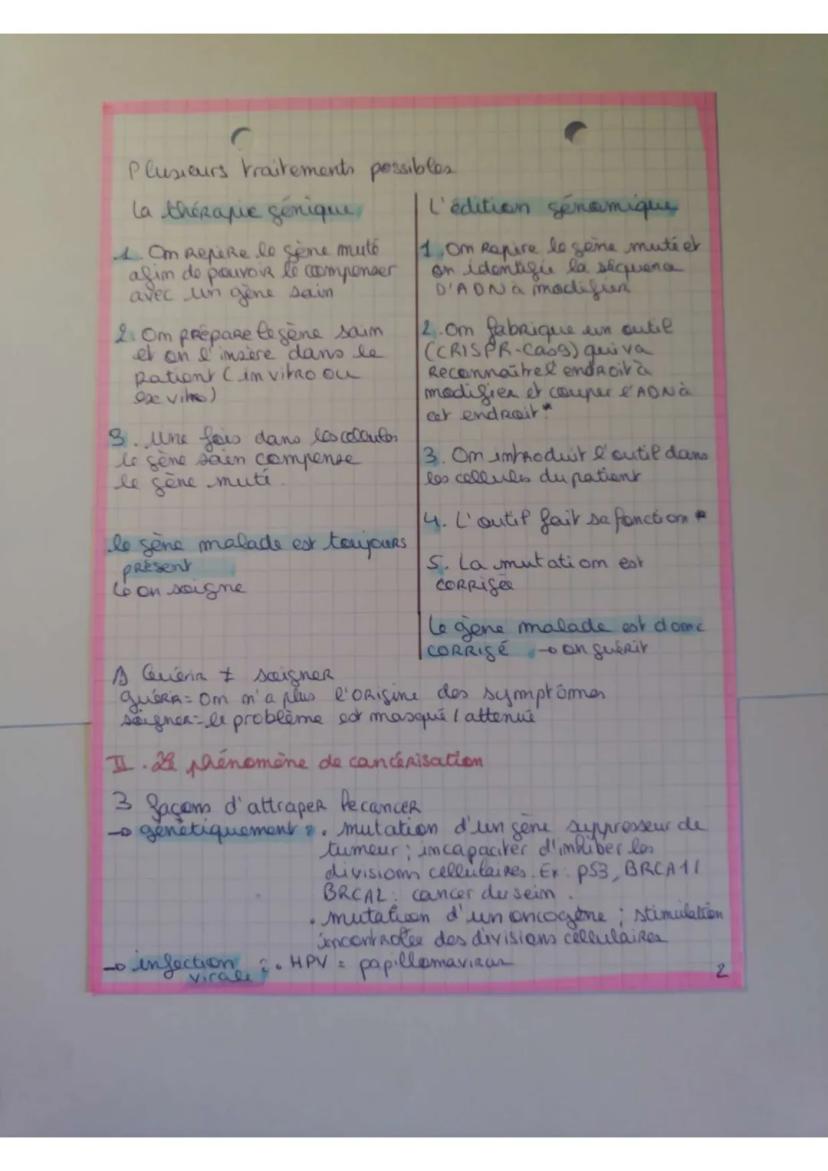 Plusieurs traitements possibles
La thérapie génique
1. On repère le gène muté
afin de pouvoir le compenser
avec un gène sain
2. On prépare le gène sain
et on l'insère dans le
patient (in vitro ou
ex vivo)
3. Une fois dans les cellules
le gène sain compense
le gène muté.
le gène malade est toujours
présent
↳ on soigne
L'édition génomique
1. On repère le gène muté et
on identifie la séquence
D'ADN à modifier
2. On fabrique un outil
(CRISPR-Cas9) qui va
Reconnaître l'endroit à
modifier et couper l'ADN à
cet endroit*
3. On introduit l'outil dans
les cellules du patient
4. L'outil fait sa fonction *
5. La mutation est
corrigée
Le gène malade est donc
corrigé → on guérit
⚠ Guérir ≠ soigner
guérir = on n'a plus l'origine des symptômes
soigner = le problème est masqué / atténué
II. Le phénomène de cancérisation
3 façons d'attraper le cancer
→ génétiquement : • mutation d'un gène suppresseur de
tumeur ; incapaciter d'inhiber les
divisions cellulaires. Ex : p53, BRCA1/
BRCA2 : cancer du sein.
• mutation d'un oncogène ; stimulation
incontrolée des divisions cellulaires
→ infection virale : • HPV = papillomavirus
2